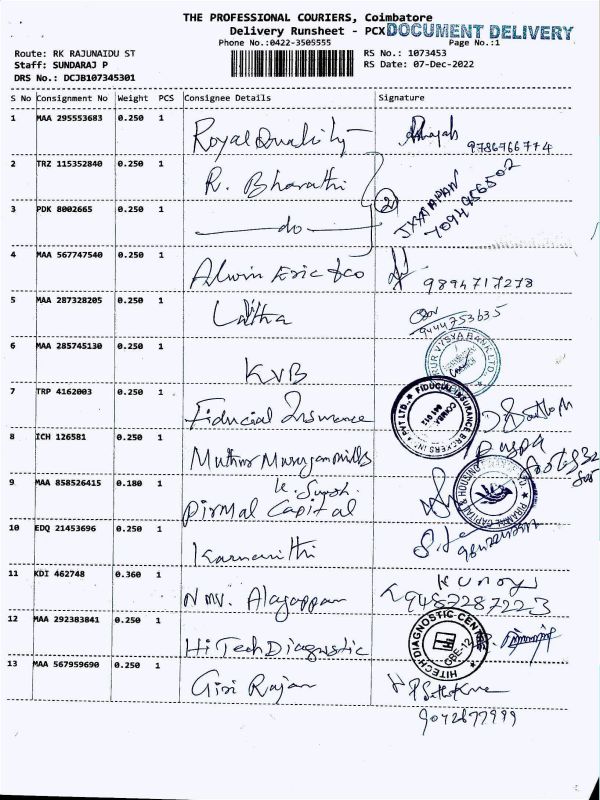 THE PROFESSIONAL COURIERS, Coimbatore
Delivery Runsheet - PCX DOCUMENT DELIVERY
Phone No.:0422-3505555 Page No.:1
Route: RK RAJUNAIDU ST RS No.: 1073453
Staff: SUNDARAJ P RS Date: 07-Dec-2022
DRS No.: DCJB107345301
S No Consignment No Weight PCS Consignee Details Signature
1 MAA 295553683 0.250 1 Royal Quality 9786766774
2 TRZ 115352840 0.250 1 R. Bharathi
3 PDK 8002665 0.250 1 do 2
4 MAA 567747540 0.250 1 Alwin Eric & co 9894717278
5 MAA 287328205 0.250 1 Lalitha 9444753635
6 MAA 285745130 0.250 1 KVB
7 TRP 4162003 0.250 1 Fiducial Insurance FIDUCIAL INSURANCE BROKERS PVT LTD.
8 ICH 126581 0.250 1 Muthur Murugan mills
9 MAA 858526415 0.180 1 Pirmal Capital PIRAMAL CAPITAL & HOUSING
10 EDQ 21453696 0.250 1
11 KDI 462748 0.360 1 Alagappan 9487287223
12 MAA 292383841 0.250 1 Hi Tech Diagnostic HITECH DIAGNOSTIC CENTRE CBE-12
13 MAA 567959690 0.250 1 Giri Rajan